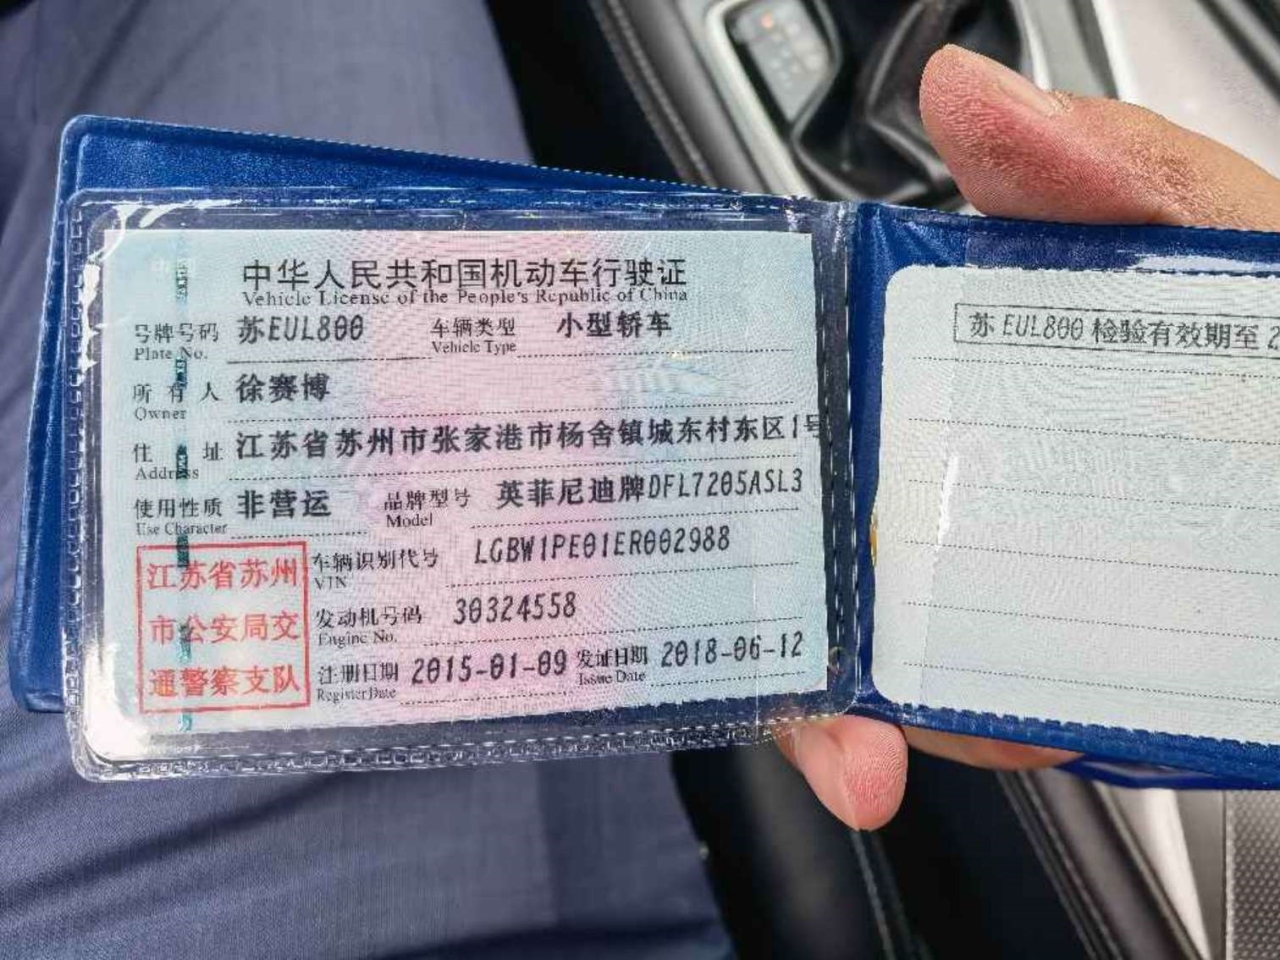 中华人民共和国机动车行驶证
Vehicle License of the People's Republic of China
号牌号码 苏EUL800 车辆类型 小型轿车
Plate No. Vehicle Type
所有人 徐赛博
Owner
住址 江苏省苏州市张家港市杨舍镇城东村东区1号
Address
使用性质 非营运 品牌型号 英菲尼迪牌DFL7205ASL3
Use Character Model
车辆识别代号 LGBW1PE01ER002988
VIN
发动机号码 30324558
Engine No.
注册日期 2015-01-09 发证日期 2018-06-12
Register Date Issue Date
江苏省苏州
市公安局交
通警察支队
苏EUL800 检验有效期至2